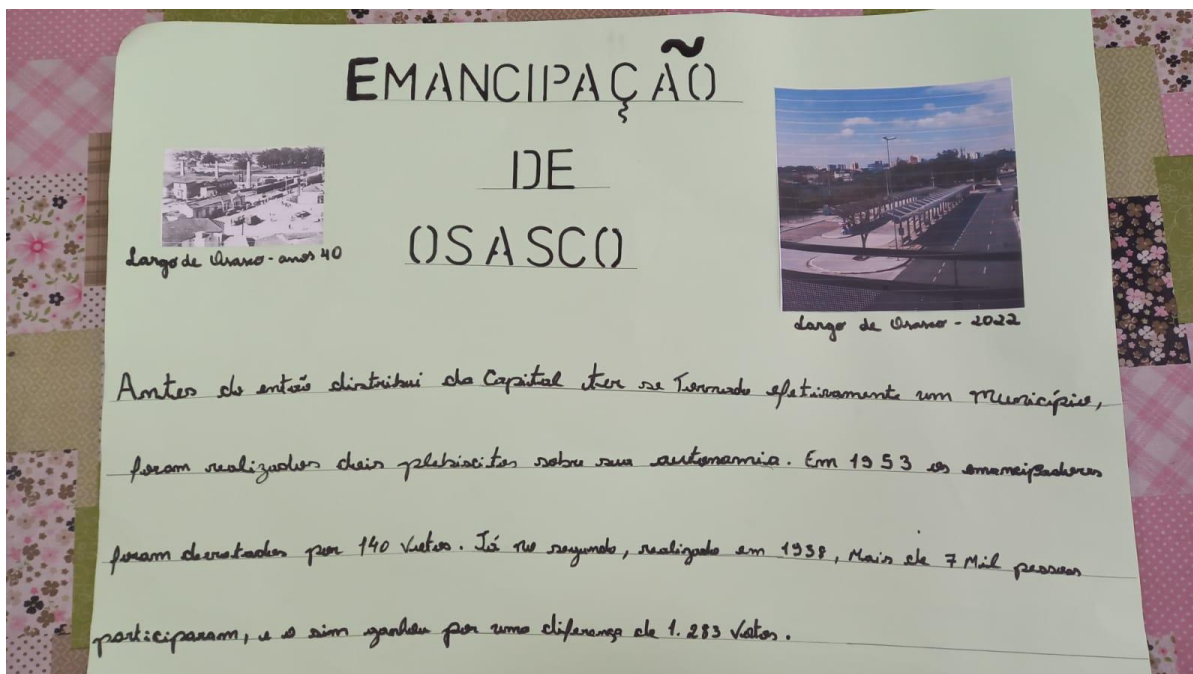 EMANCIPAÇÃO
DE
OSASCO
Largo de Osasco - anos 40
Largo de Osasco - 2022
Antes do então distribui da Capital ter se Tornado efetivamente um município,
foram realizados dois plebiscitos sobre sua autonomia. Em 1953 os emancipadores
foram derrotados por 140 Votos. Já no segundo, realizado em 1938, Mais de 7 Mil pessoas
participaram, e o sim ganhou por uma diferença de 1.283 Votos.